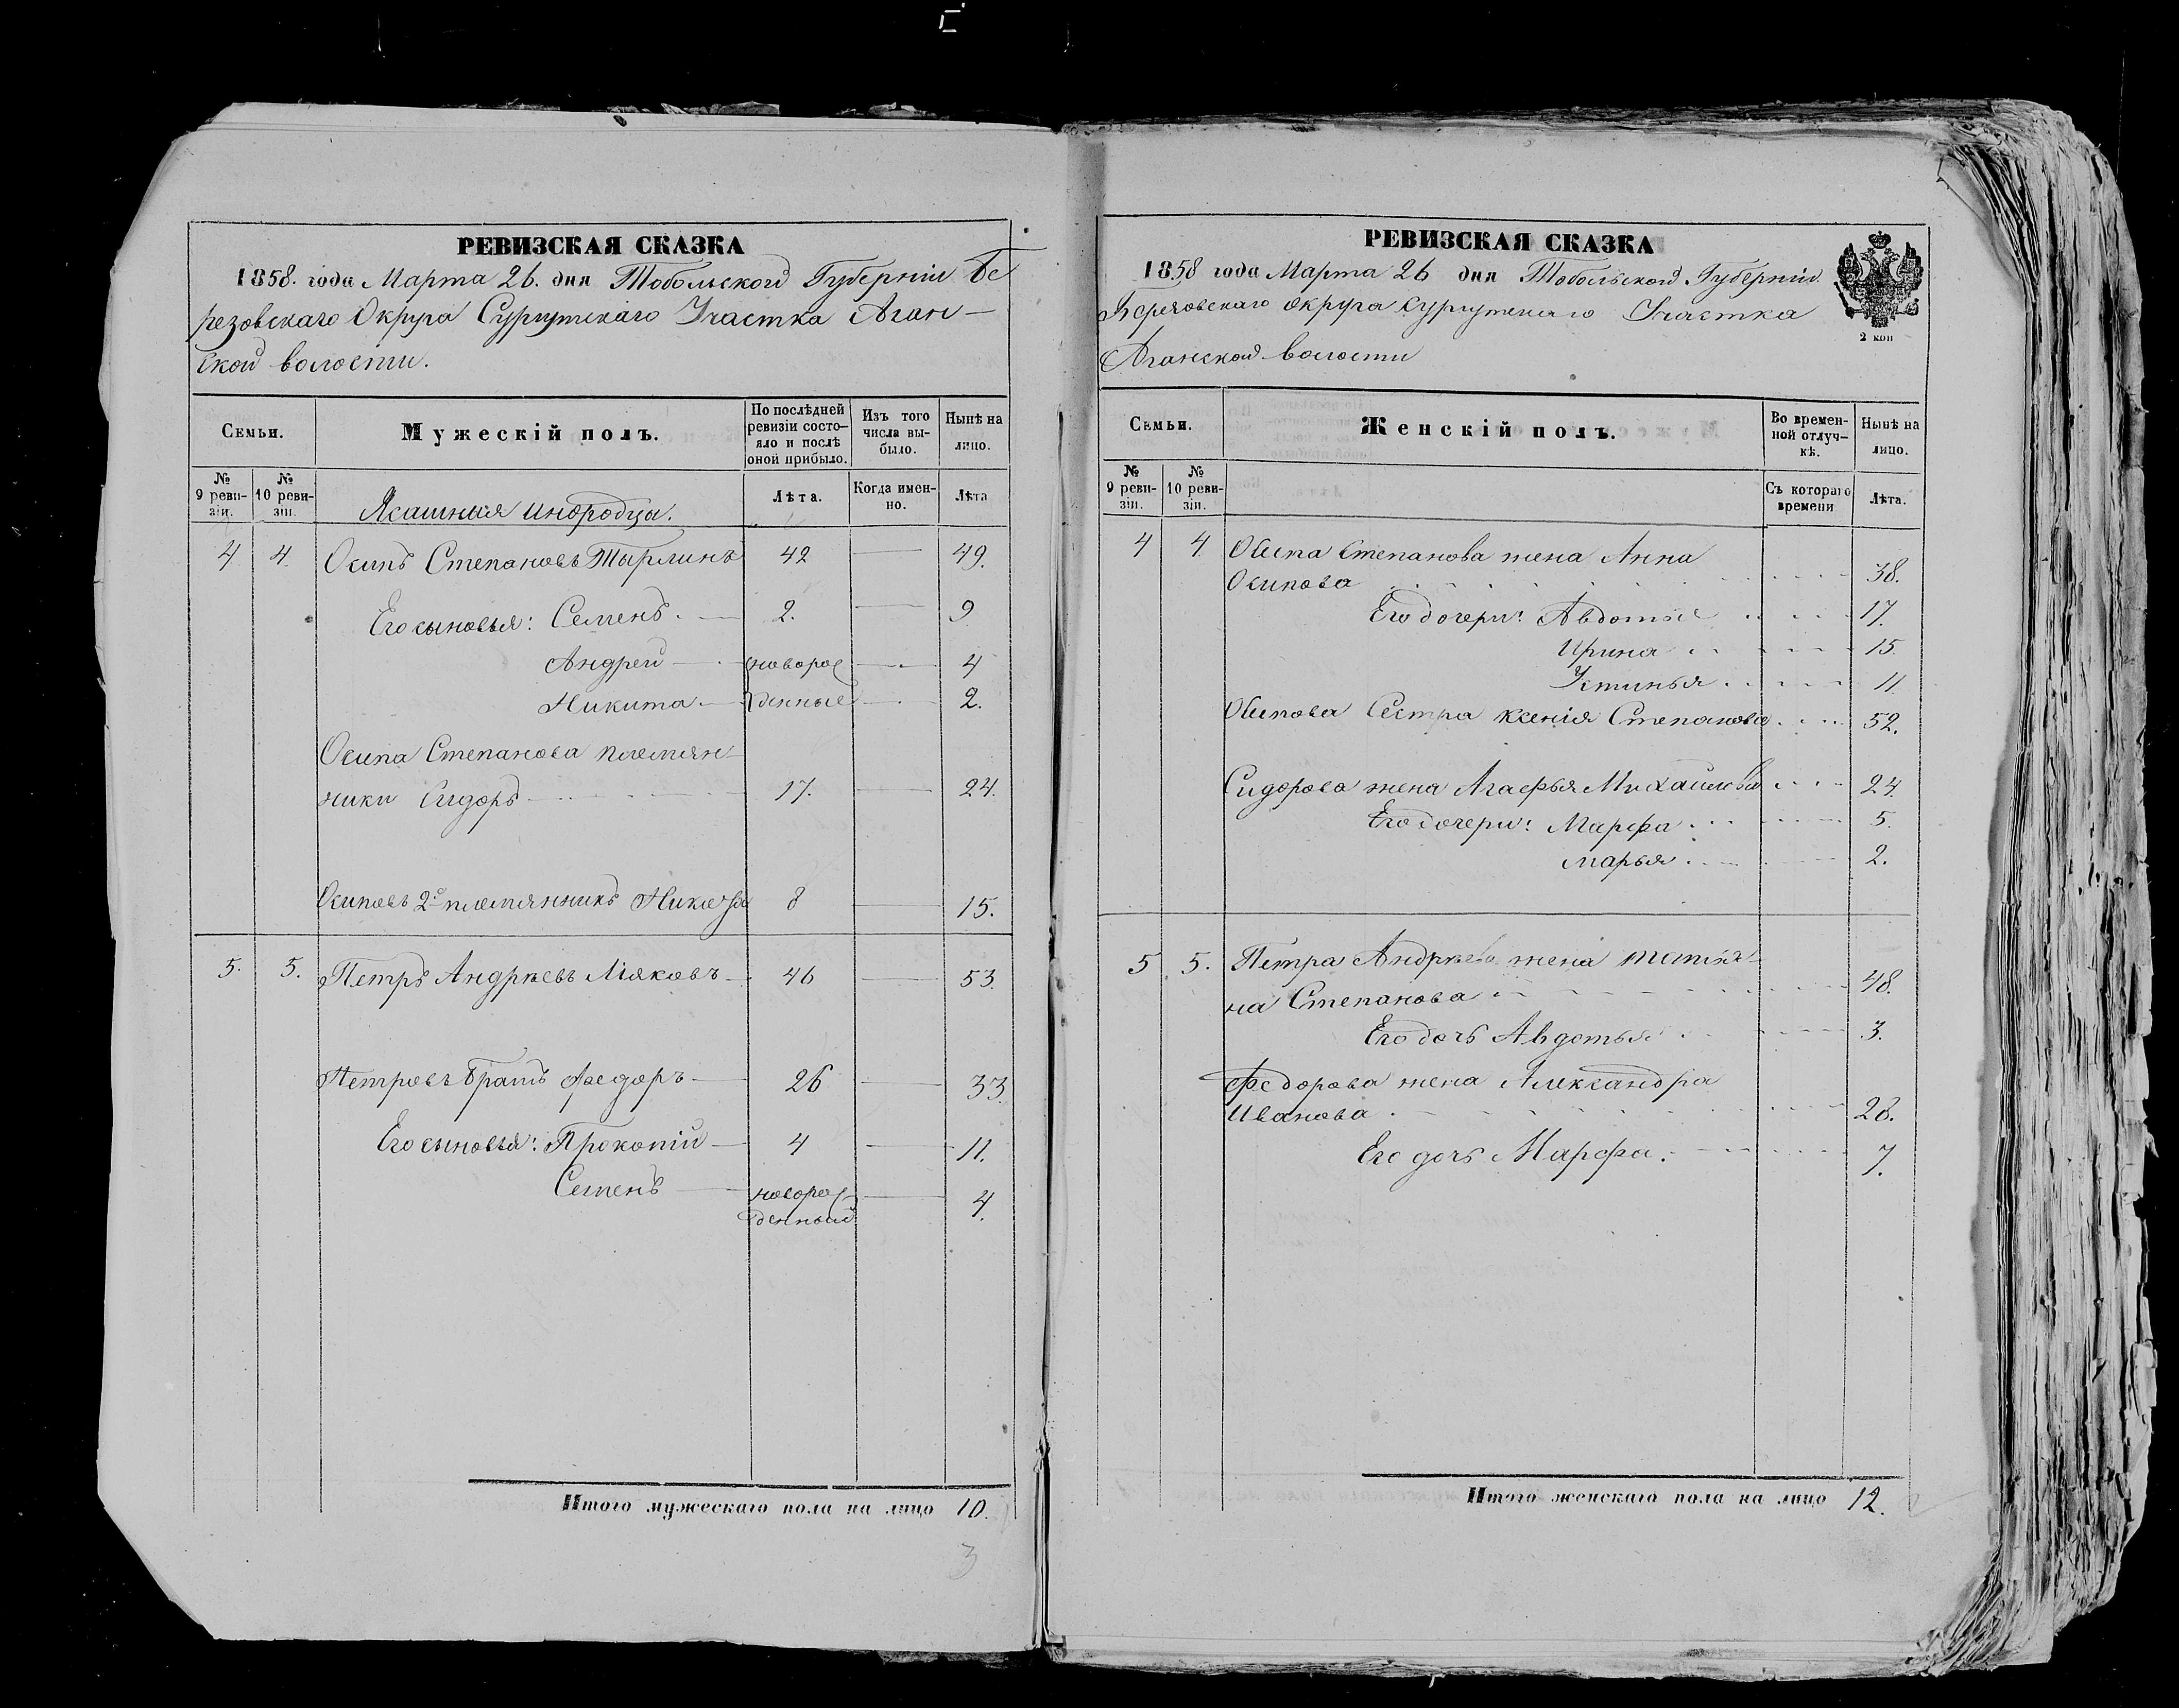 РЕВИЗСКАЯ СКАЗКА
1858. года Марта 26. дня Тобольской Губерніи Бе
резовскаго Округа Сургутскаго Участка Аган-
ской волости.
Семьи.
Мужескій полъ.
По послѣдней ревизіи состо- яло и послѣ оной прибыло.
Изъ того числа вы- было.
Нынѣ на лицо.
№ 9 реви- зіи.
№ 10 реви- зіи.
Ясашныя инородцы.
Лѣта.
Когда имен- но.
Лѣта
4 4. Осипъ Степановъ Тырлинъ 42 — 49.
Его сыновья: Семенъ. — 2. — 9
Андрей — новорож — 4
Никита — денные — 2.
Осипа Степанова племян-
ники Сидоръ 17. — 24.
Осиповъ 2й племянникъ 8 — 15.
5. 5. Петръ Андрѣевъ Ляковъ 46 — 53.
Петровъ братъ Федоръ — 26 — 33.
Его сыновья: Прокопій — 4 — 11.
Семенъ — новорож — 4.
денный
Итого мужескаго пола на лицо 10.
3
РЕВИЗСКАЯ СКАЗКА
1858 года Марта 26 дня Тобольской Губерніи
Березовскаго округа Сургутскаго Участка
Аганской волости
2 коп
Семьи.
Женскій полъ.
Во времен- ной отлуч- кѣ.
Нынѣ на лицо.
№ 9 реви- зіи.
№ 10 реви- зіи.
Съ котораго времени
Лѣта.
4 4. Осипа Степанова жена Анна
Осипова 38.
Его дочери: Авдотья 17.
Ирина 15.
Устинья 11
Осипова Сестра Ксенія Степанова 52.
Сидорова жена Агафья Михайлова 24.
Его дочери: Марфа 5.
Марья 2.
5 5. Петра Андрѣева жена Титья-
на Степанова 48.
Его дочь Авдотья 3.
Федорова жена Александра
Иванова 28.
Его дочь Марфа. 7.
Итого женскаго пола на лицо 12.